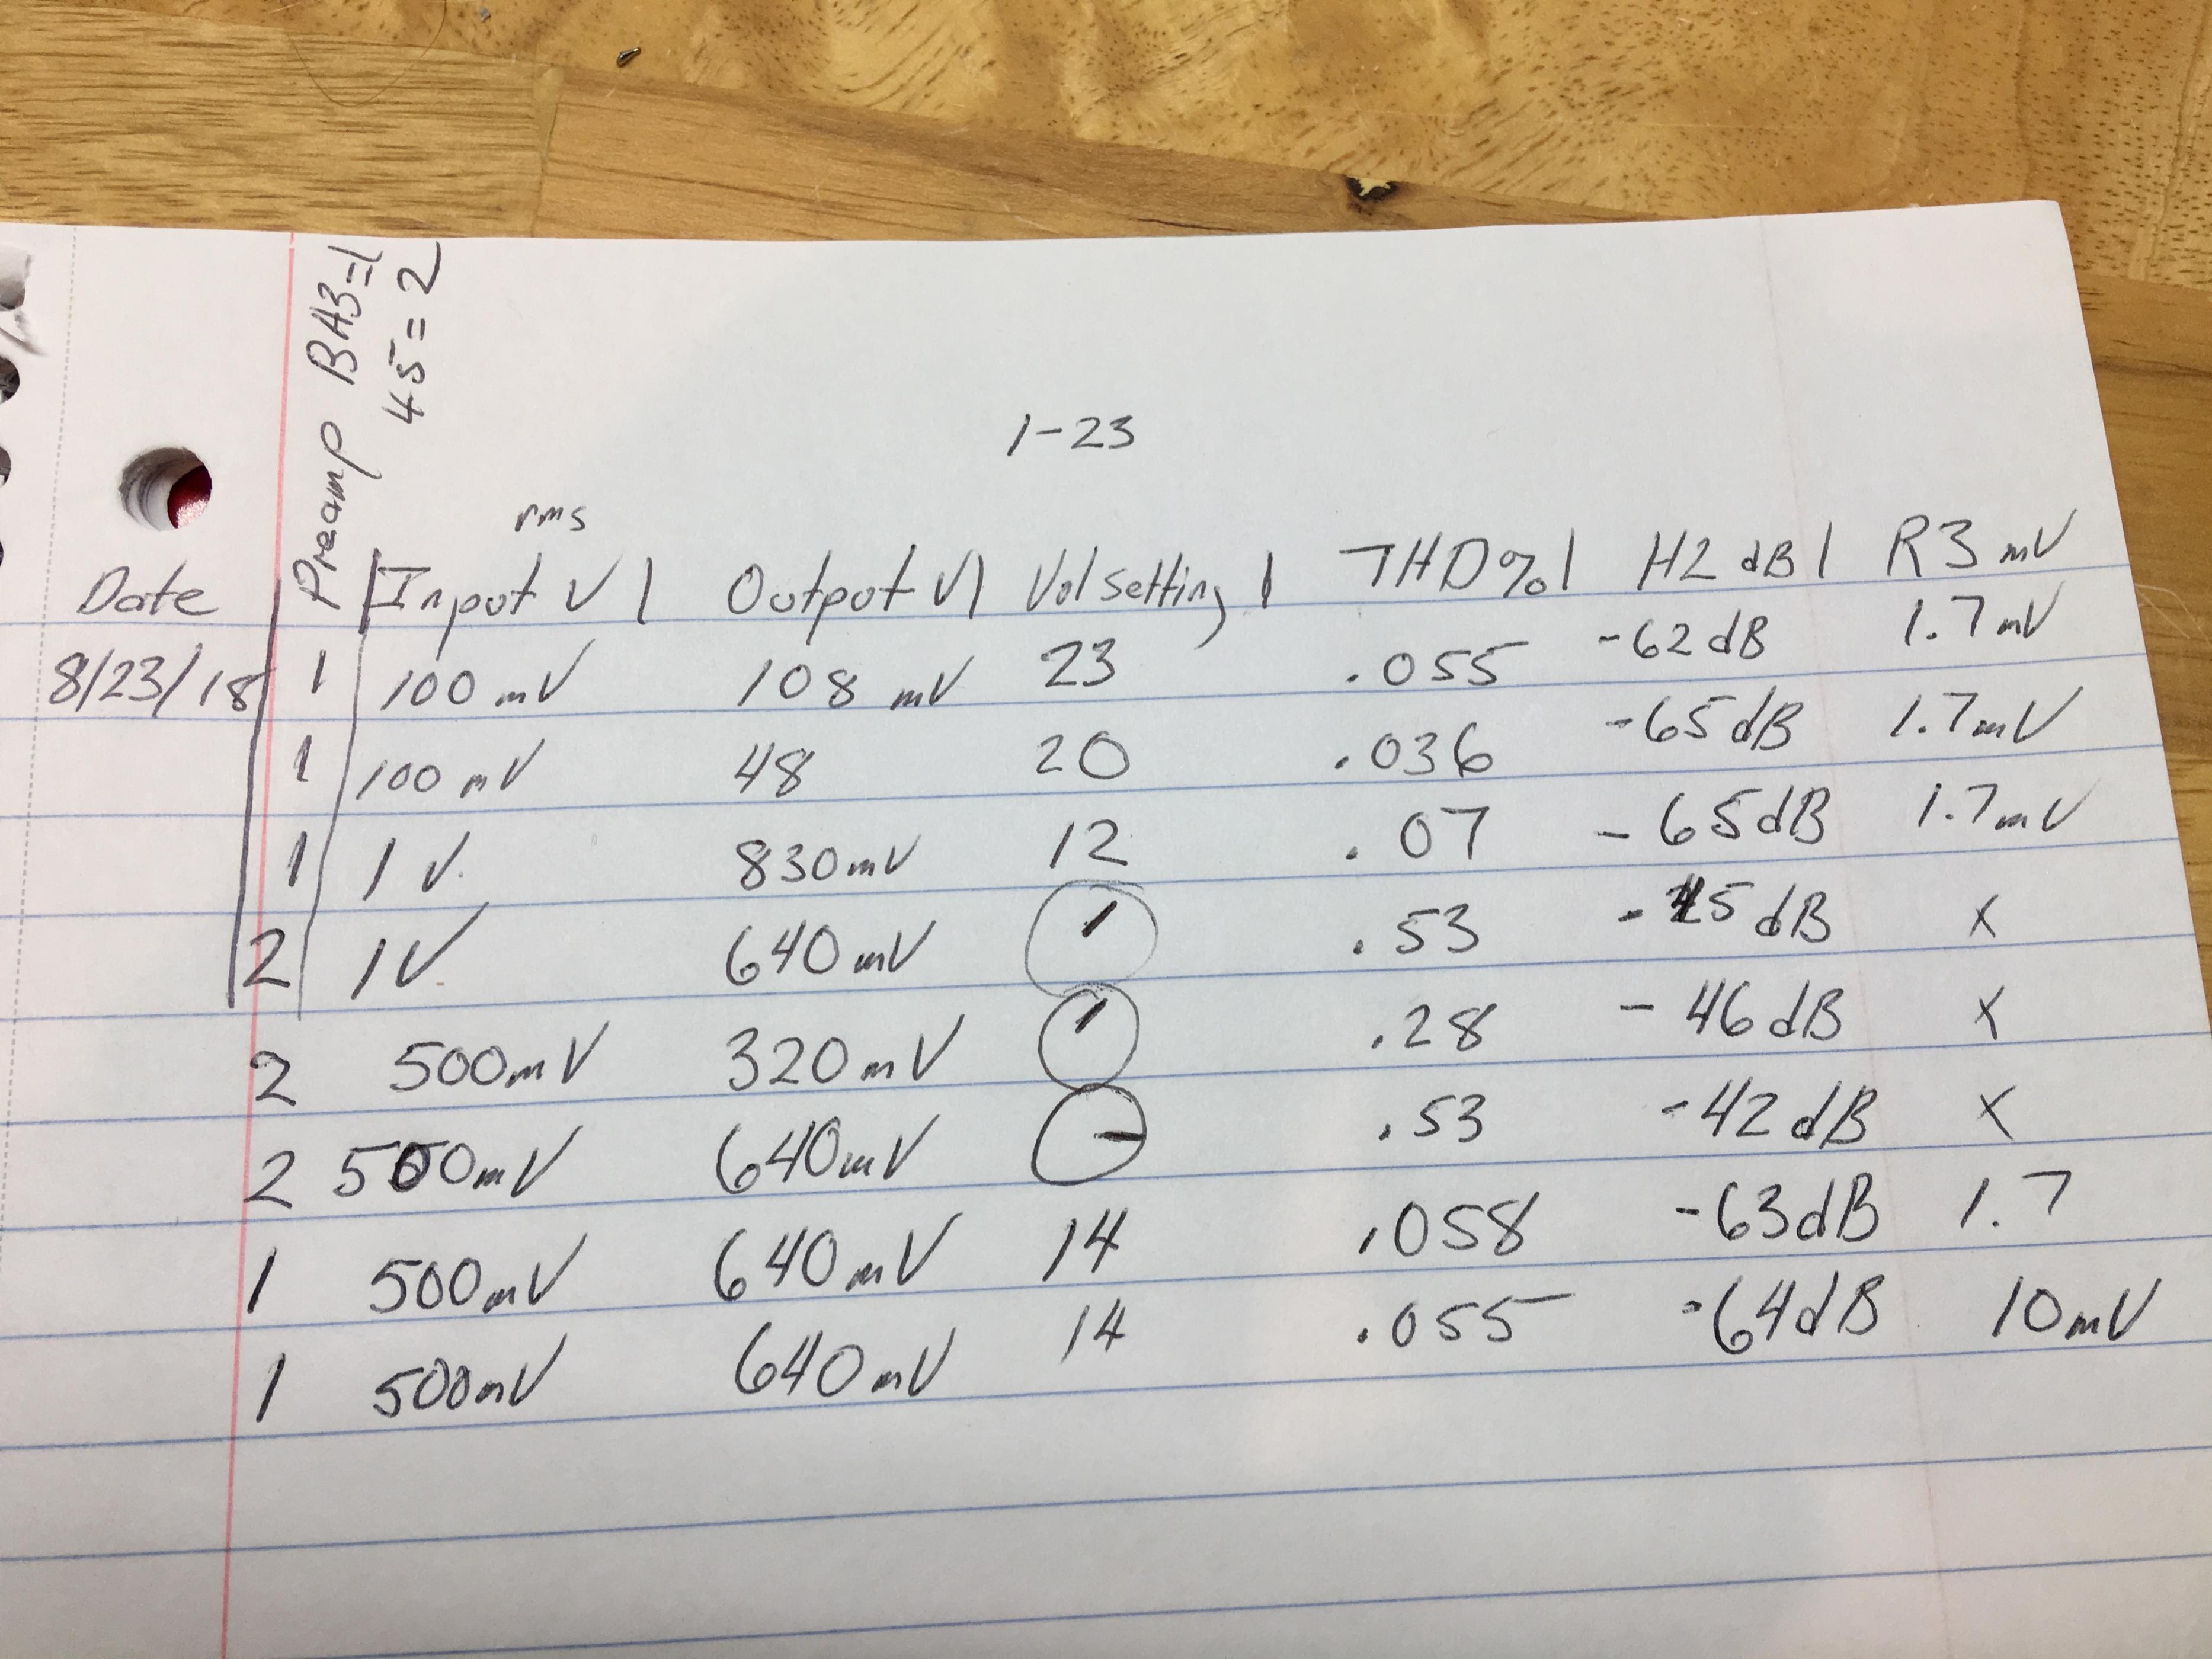 Preamp BA3=1
45=2
1-23
rms
Date | Preamp | Input V | Output V | Vol setting | THD% | H2 dB | R3 mV
8/23/18 1 100 mV 108 mV 23 .055 -62 dB 1.7 mV
1 100 mV 48 20 .036 -65 dB 1.7 mV
1 1 V. 830 mV 12 .07 -65 dB 1.7 mV
2 1 V 640 mV .53 -45 dB x
2 500 mV 320 mV .28 -46 dB x
2 500 mV 640 mV .53 -42 dB x
1 500 mV 640 mV 14 .058 -63 dB 1.7
1 500 mV 640 mV 14 .055 -64 dB 10 mV